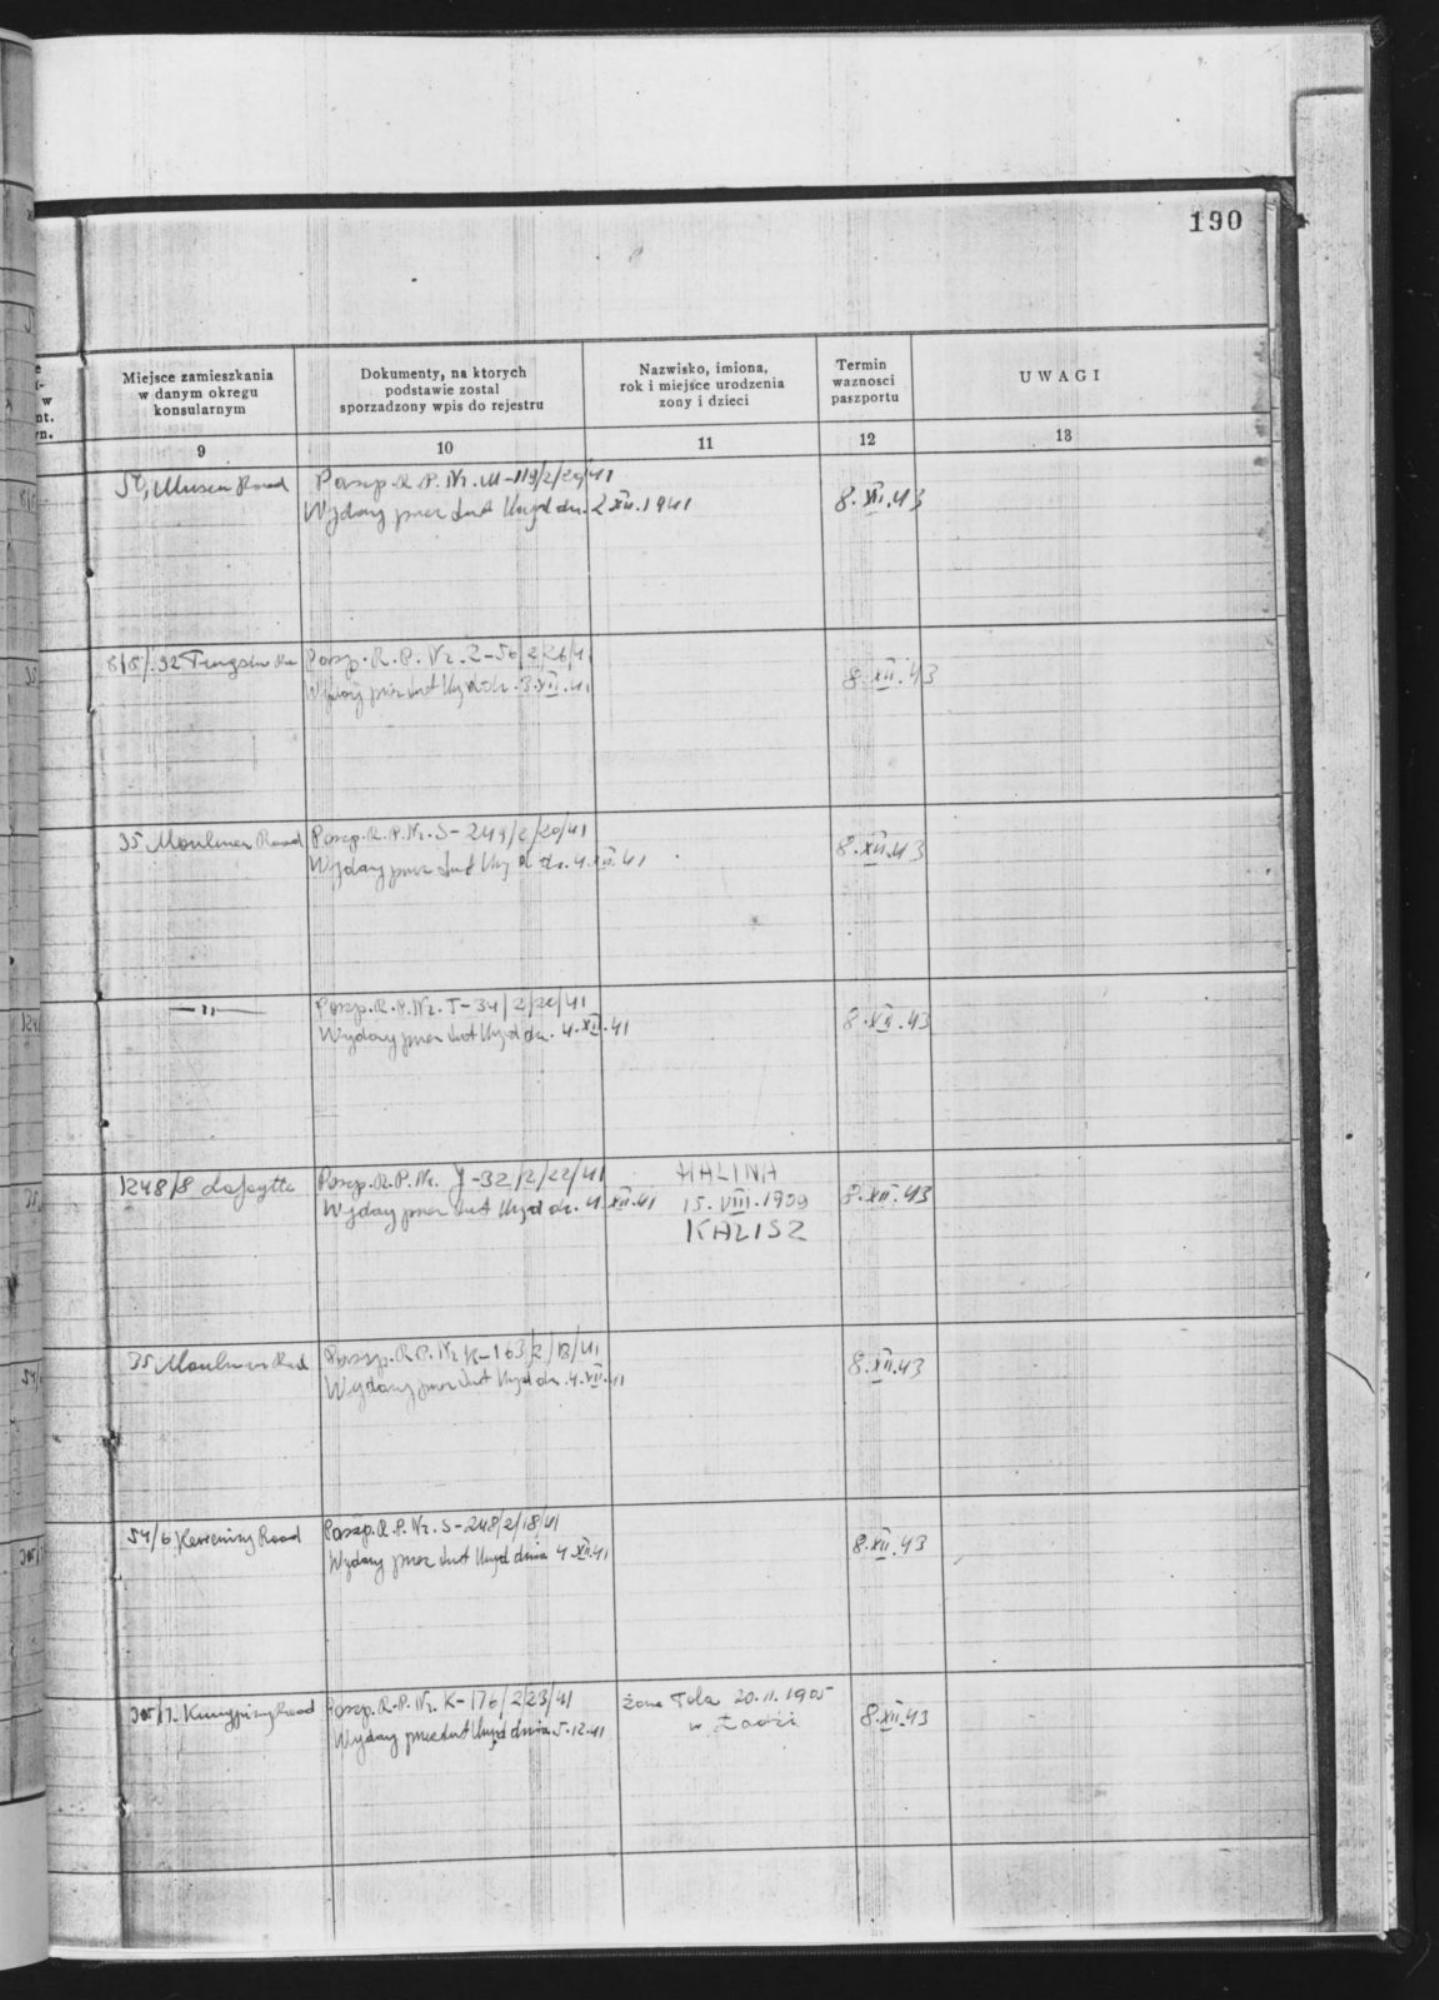 190
Miejsce zamieszkania
w danym okregu
konsularnym
Dokumenty, na ktorych
podstawie zostal
sporzadzony wpis do rejestru
Nazwisko, imiona,
rok i miejsce urodzenia
zony i dzieci
Termin
waznosci
paszportu
UWAGI
9
10
11
12
13
Road
Paszp. R. P. Nr. M-119/2/29/41
Wydany przez tut Urząd dn. 2 XII. 1941
8. XII. 43
Paszp. R. P. Nr. Z-56/2/26/41
Wydany przez tut Urząd dn. 3. XII. 41
8. XII. 43
35 Moulmen Road
Paszp. R. P. Nr. S-249/2/20/41
Wydany przez tut Urząd dn. 4. XII. 41
8. XII. 43
—"—
Paszp. R. P. Nr. T-34/2/20/41
Wydany przez tut Urząd dn. 4. XII. 41
8. XII. 43
1248/8 Lafaytte
Paszp. R. P. Nr. J-32/2/22/41
Wydany przez tut Urząd dn. 4. XII. 41
HALINA
15. VIII. 1909
KALISZ
8. XII. 43
35 Moulmen Road
Paszp. R. P. Nr K-163/2/18/41
Wydany przez tut Urząd dn. 4. XII. 41
8. XII. 43
54/6 Road
Paszp. R. P. Nr. S-248/2/18/41
Wydany przez tut Urząd dnia 4. XII. 41
8. XII. 43
Road
Paszp. R. P. Nr. K-176/2/23/41
Wydany przez tut Urząd dnia 5. 12. 41
żona Tola 20. II. 1905
w Łodzi
8. XII. 43